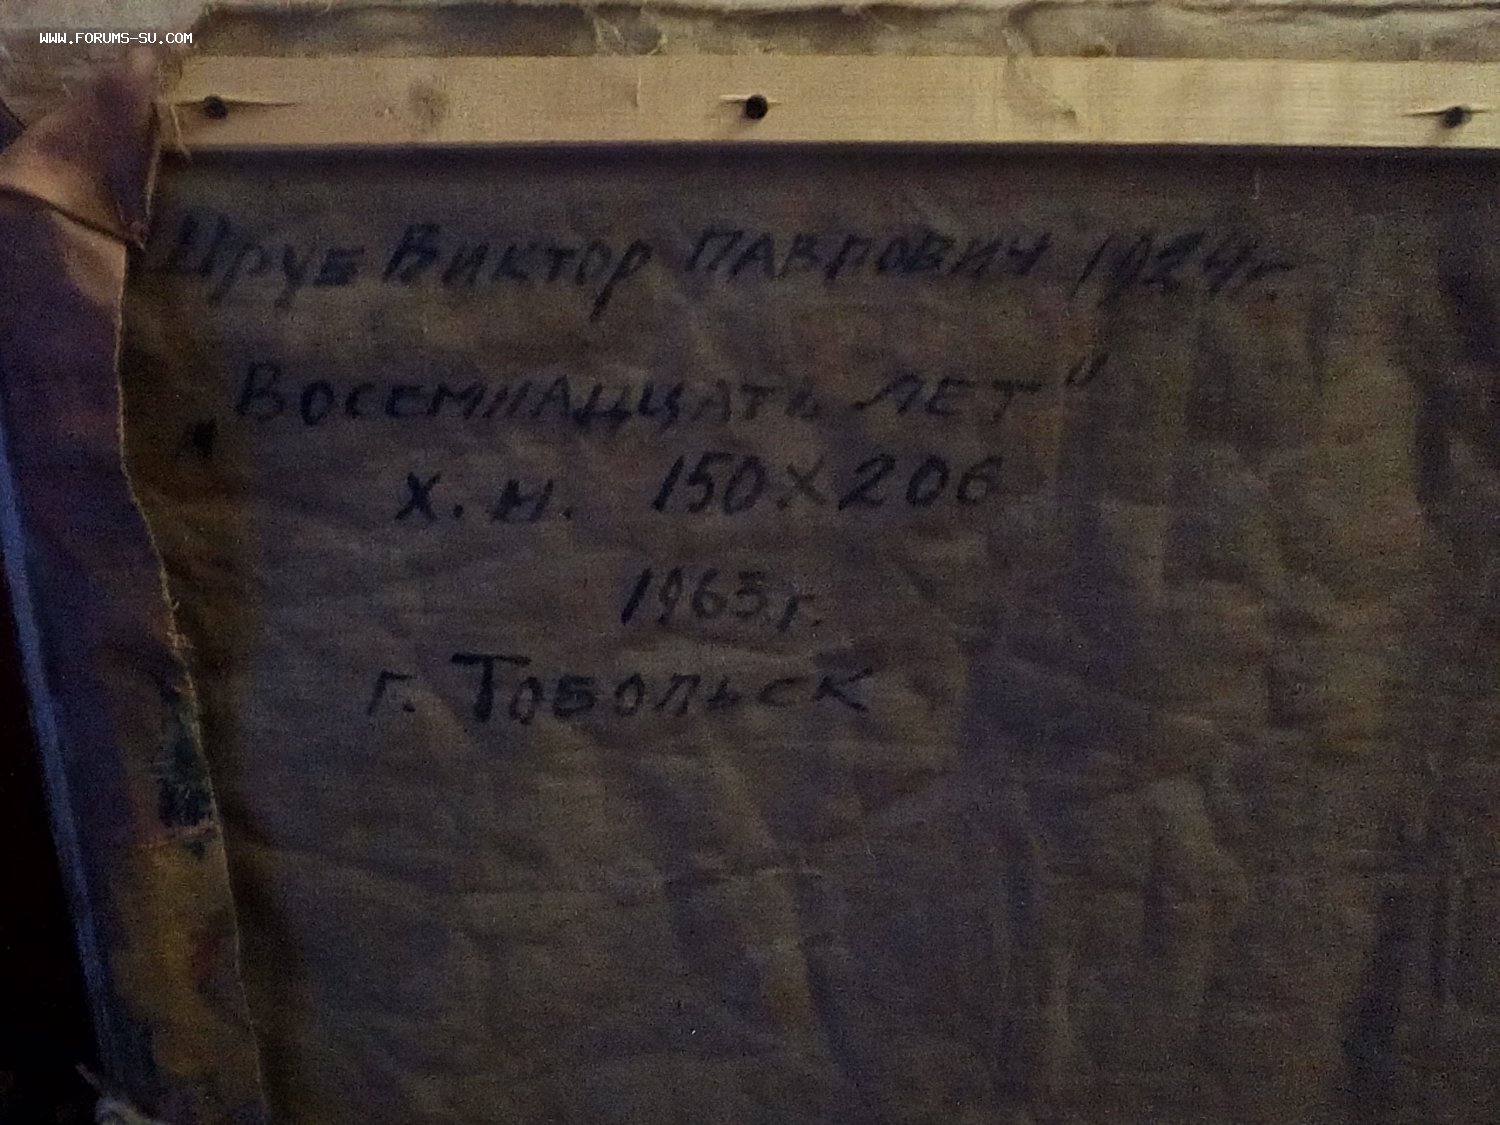 WWW.FORUMS-SU.COM
Виктор Павлович 1924г.
„Восемнадцать лет"
х.м. 150х206
1963.г.
г. Тобольск